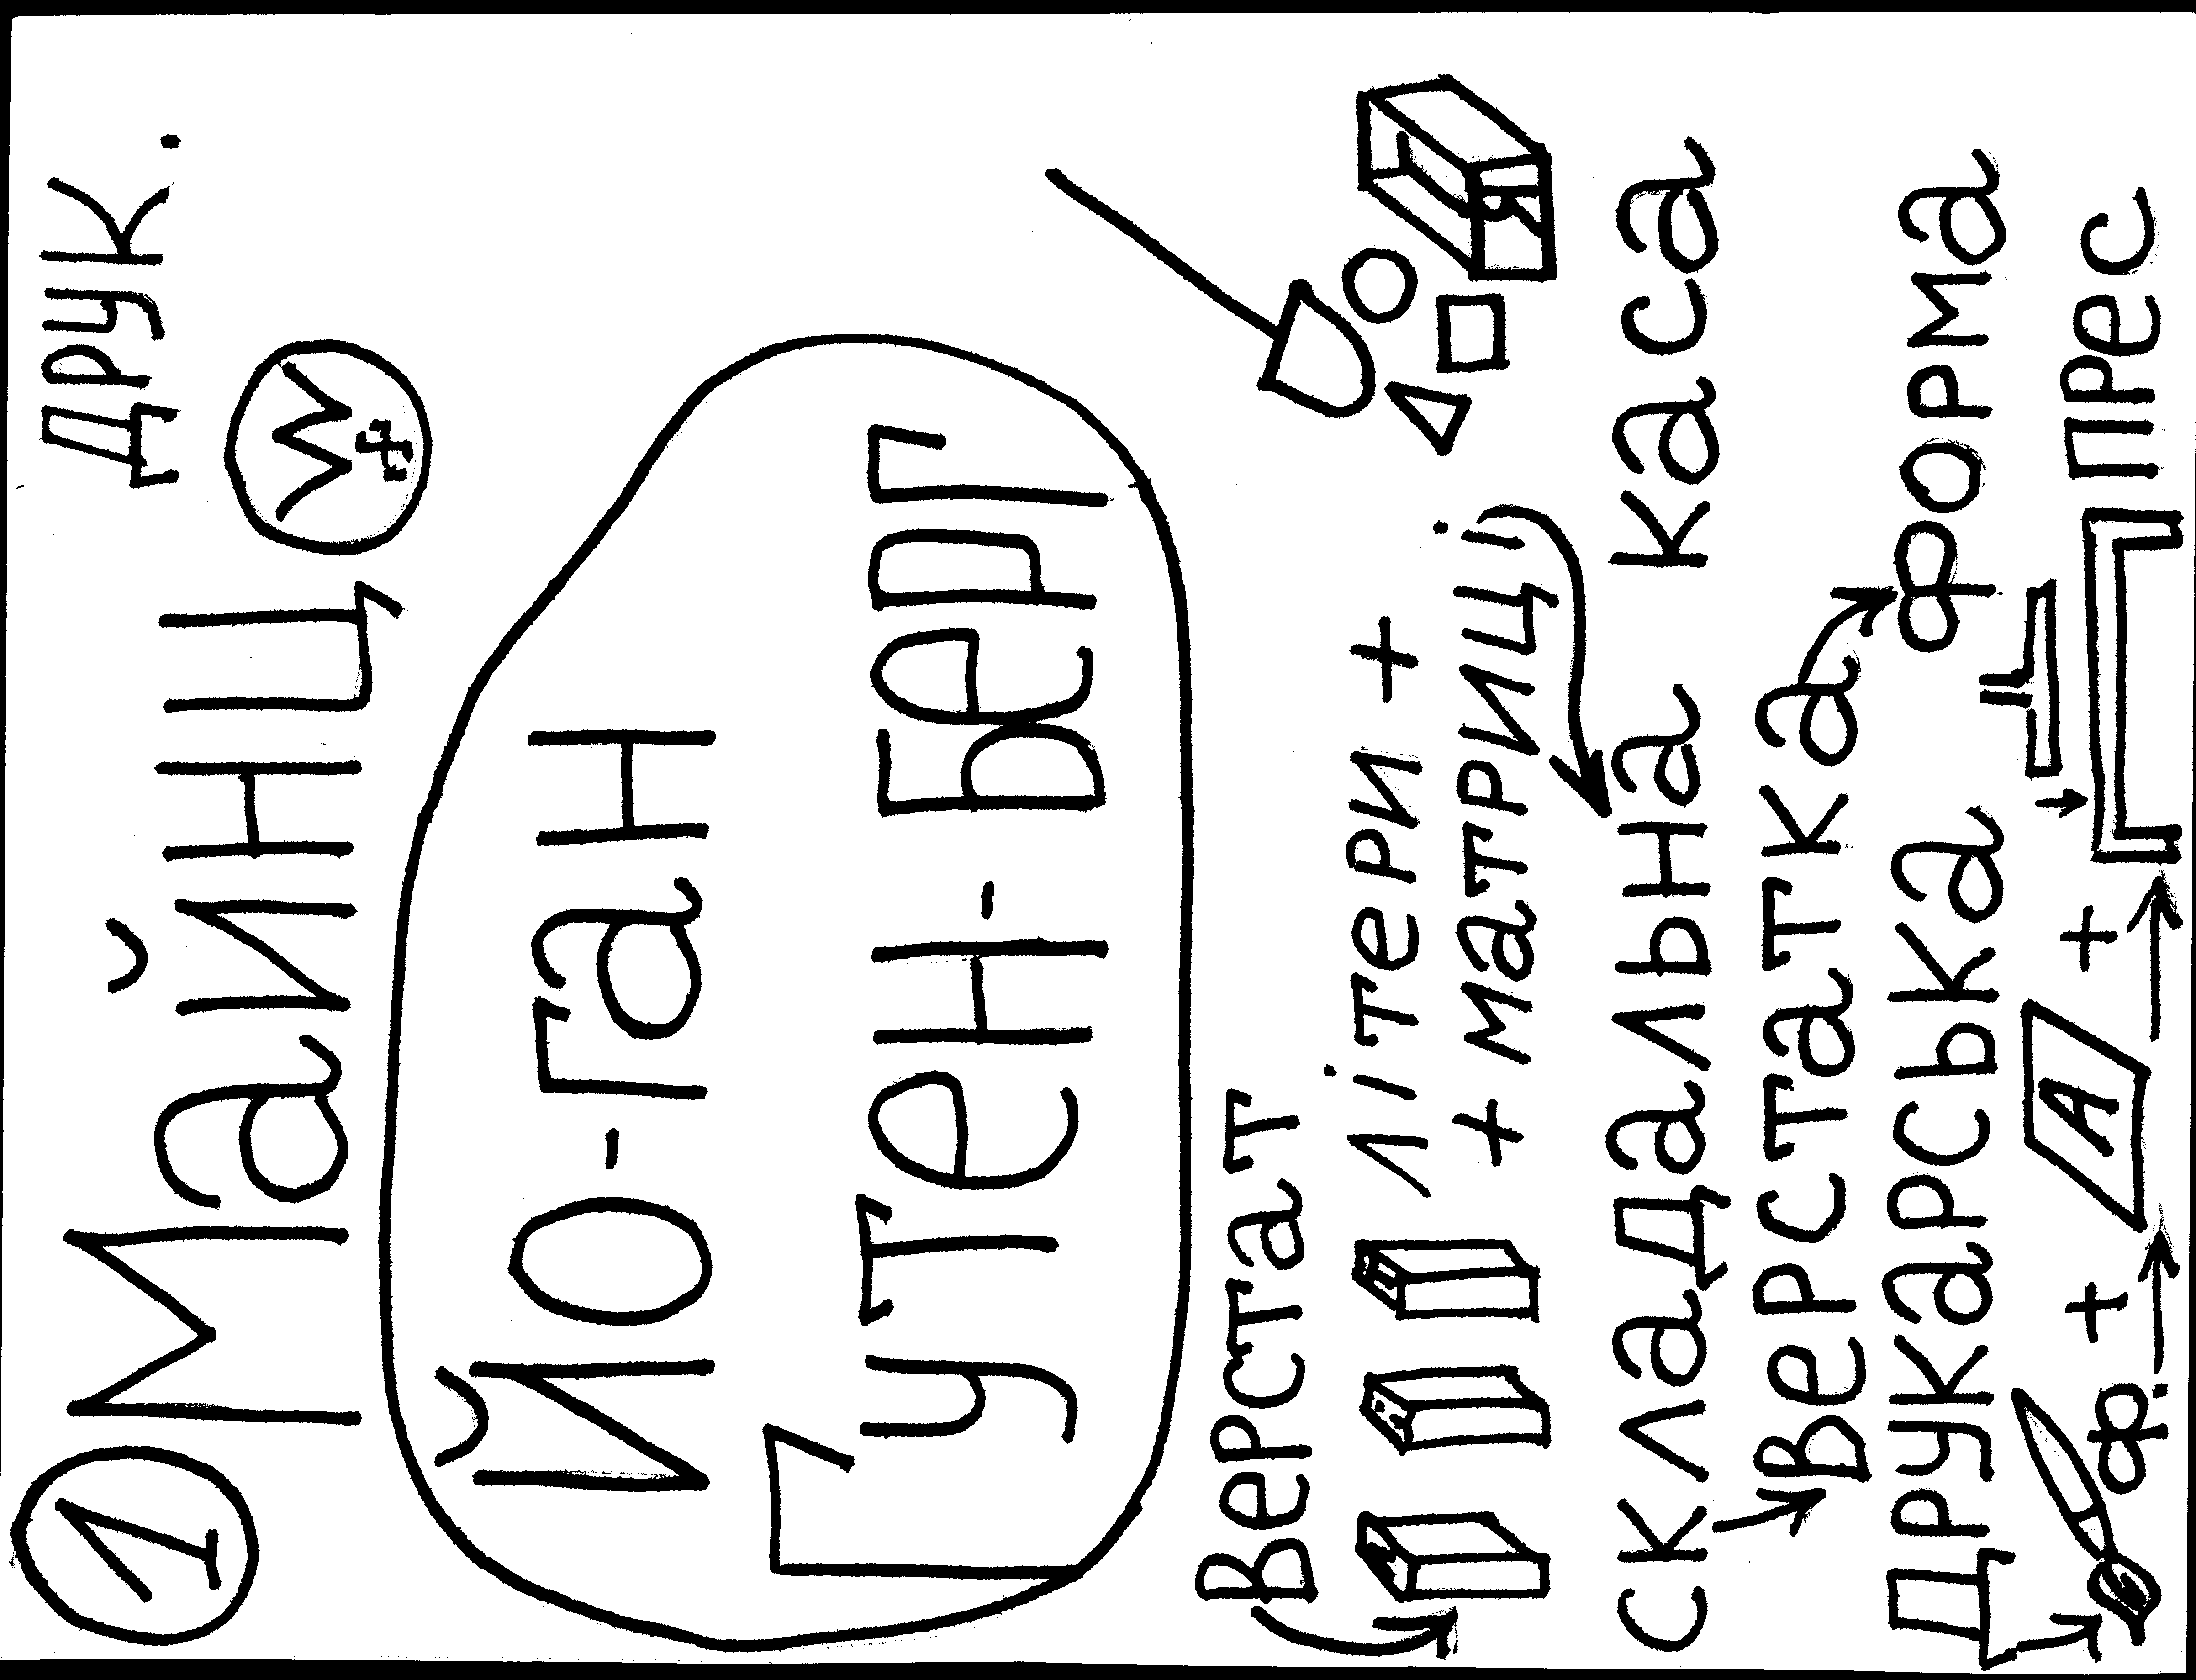 ① Майнц друк.
Йо-ган
Гутен-берг
Верстат
літери +
+ матриці
складальна каса
верстатка
друкарська форма
ф. + А + прес